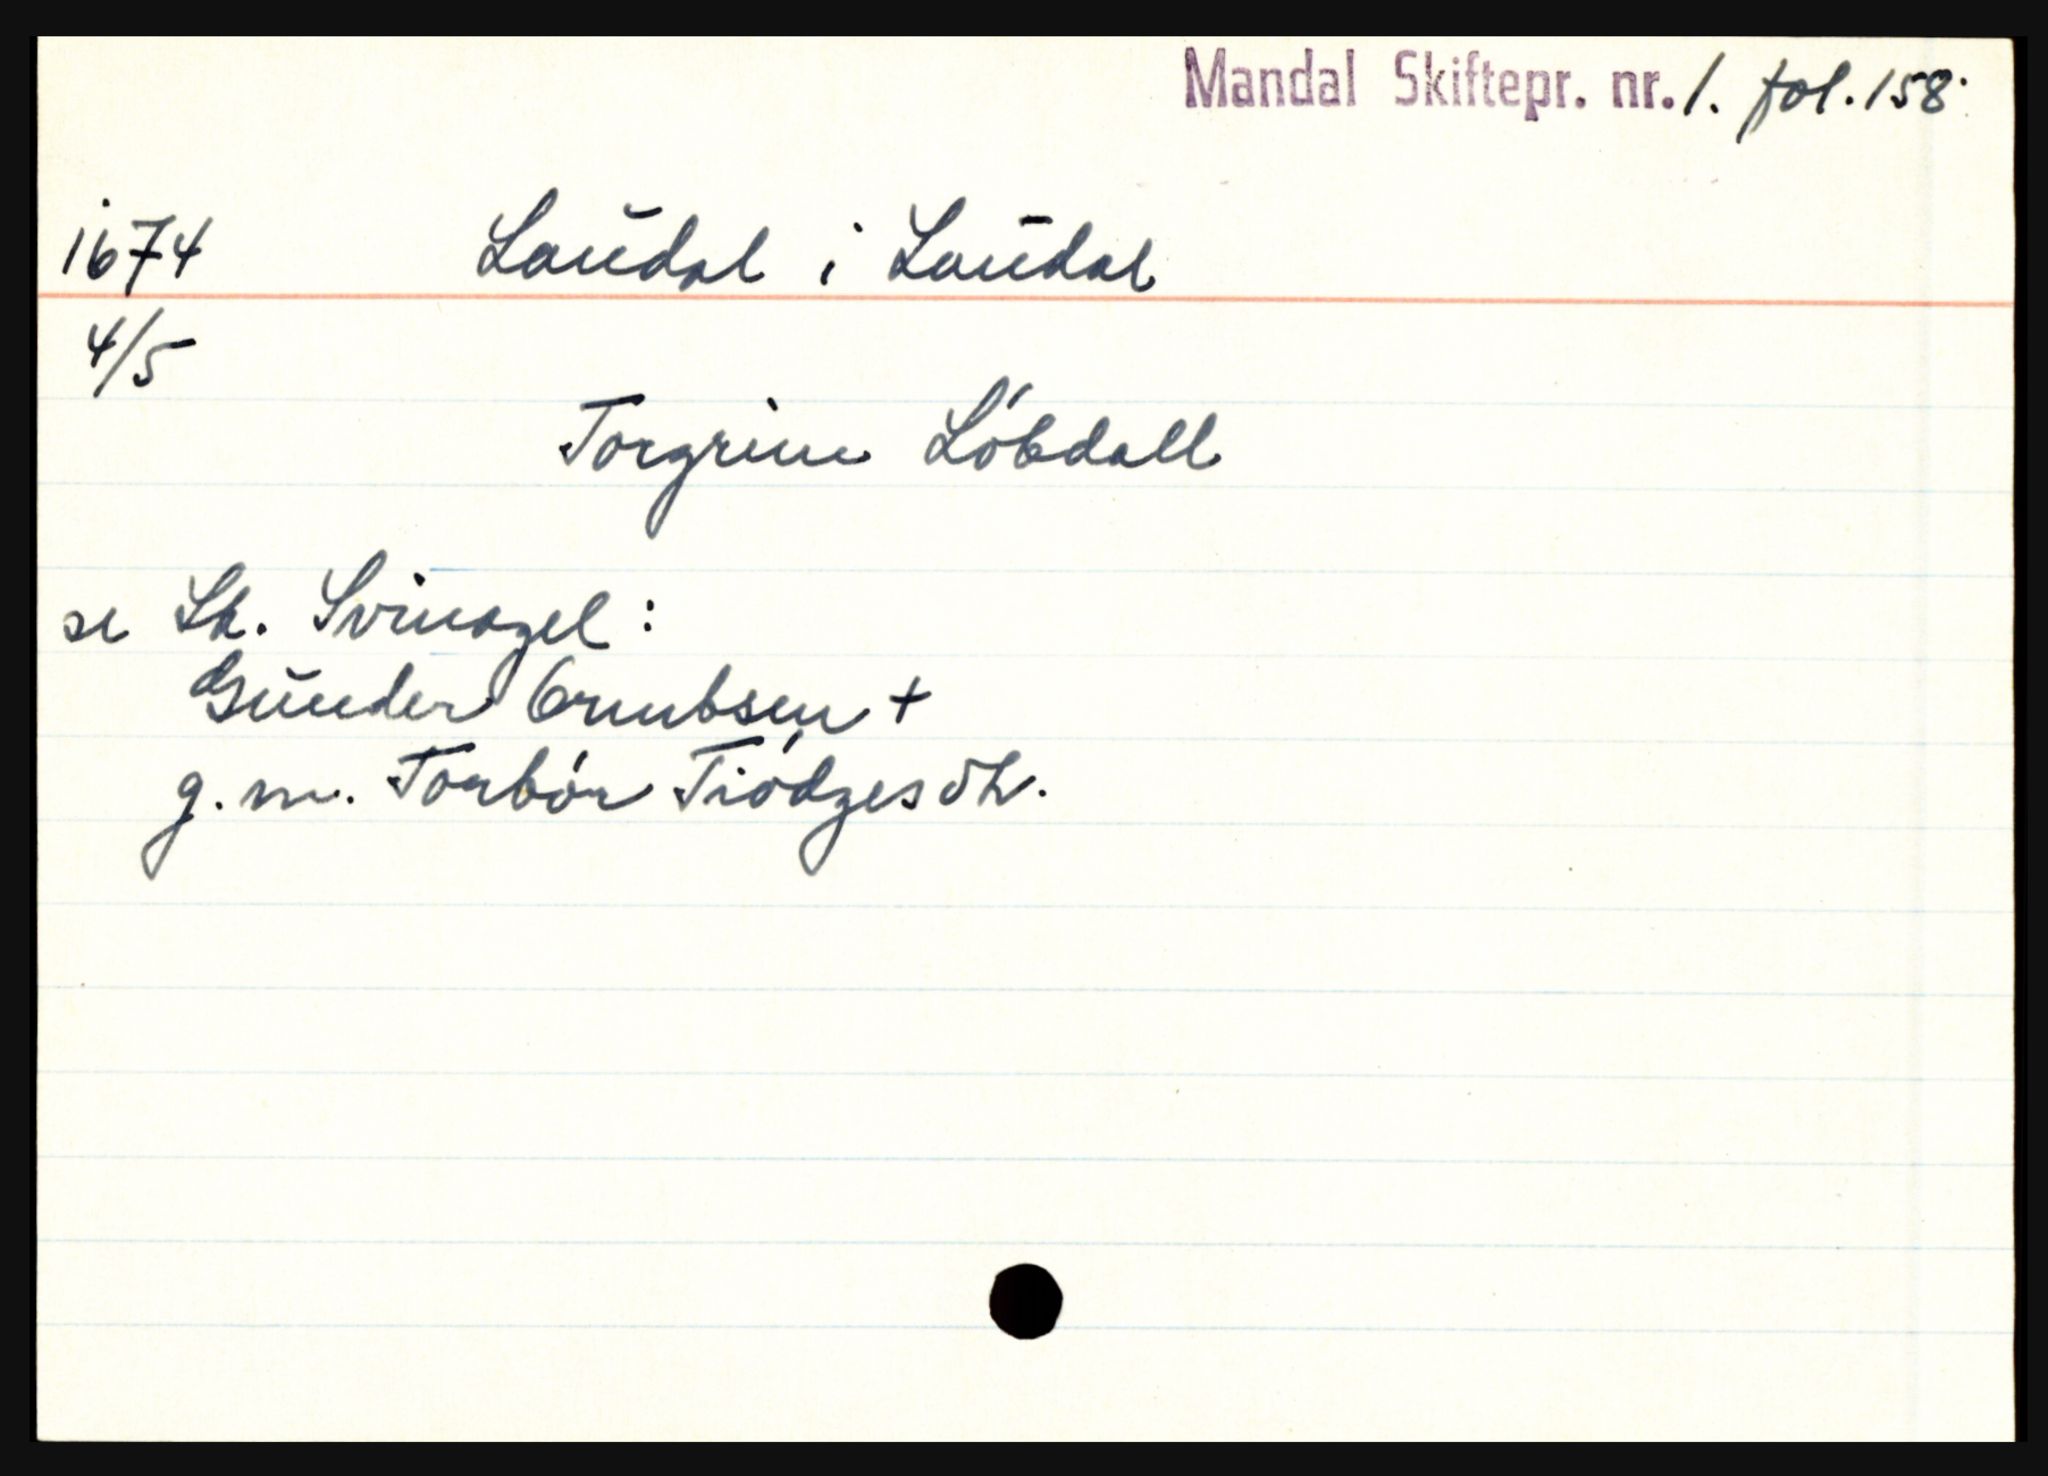 Mandal Skiftepr. nr. 1. fol. 158.
1674 Laudal i Laudal
4/5
Torgrim Lóbdall
se Sk. Svinagel:
Gunder Ormbsen +
g. m. Torbór Tiódgesdtr.